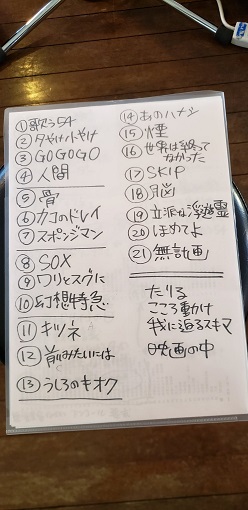 ①歌う54
②夕やけ小やけ
③GOGOGO
④人間
⑤骨
⑥カコのドレイ
⑦スポンジマン
⑧SOX
⑨ワリとスグに
⑩幻想特急
⑪キツネ
⑫前みたいには
⑬うしろのキオク
⑭あのハナシ
⑮煙
⑯世界は終って
なかった
⑰SKIP
⑱脳
⑲立派な浮遊霊
⑳ほめてよ
㉑無計画
たりる
こころ動け
我に迫るスキマ
映画の中